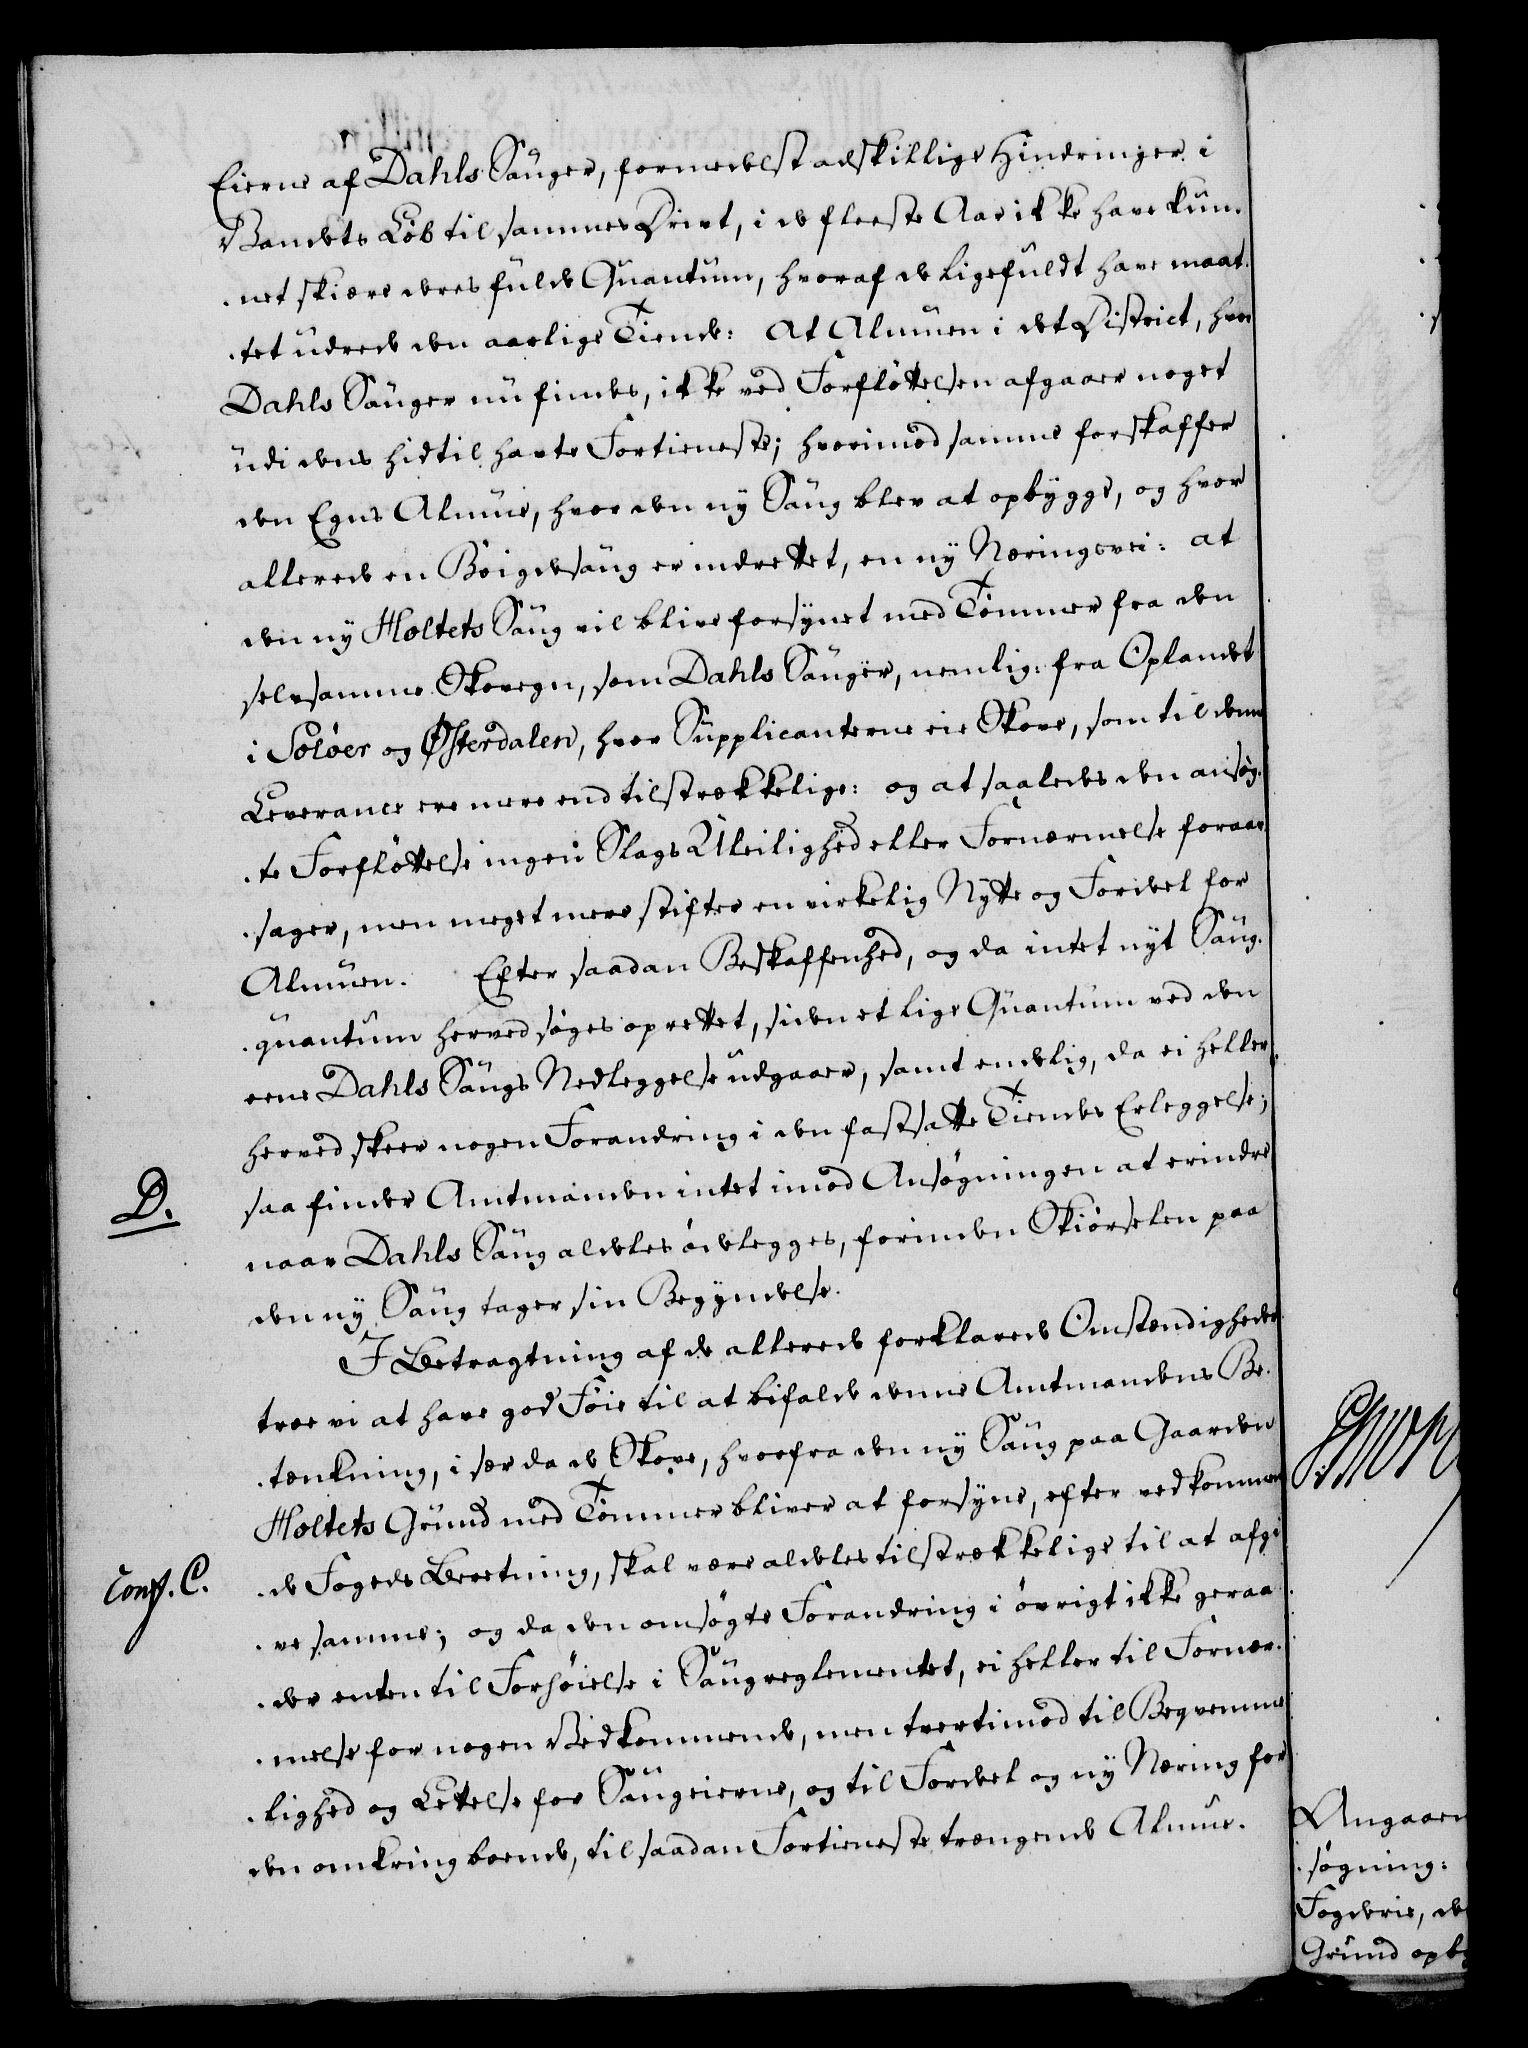 Eierne af Dahls Sauger, formedelst adskillige Hindringer i
Vandets Løb til sammes Drivt, i de fleeste Aar ikke have kun-
-net skiære deres fulde Quantum, hvoraf de ligefuldt have maat-
-tet udrede den aarlige Tiende: At Almuen i det District, hvor
Dahls Sauger nu findes, ikke ved Forflöttelsen afgaaer noget
udi dens hidtil havte Fortieneste; hvorimod samme forskaffer
den Egns Almue, hvor den ny Saug blev at opbygge, og hvor
allerede en Böigdesaug er indrettet, en ny Næringsvei: at
den ny Holtets Saug vil blive forsynet med Tömmer fra den
selvsamme Skovegn, som Dahls Sauger, nemlig: fra Oplandet
i Solöer og Østerdalen, hvor Supplicanterne eie Skove, som til denne
Leverance ere mere end tilstrækkelige: og at saaledes den ansøg-
-te Forflöttelse ingen Slags Uleilighed eller Fornærmelse foraar-
-sager, men meget mere stifter en virkelig Nytte og Fordeel for
Almuen. Efter saadan Beskaffenhed, og da intet nyt Saug-
-quantum herved søges oprettet, siden et lige Quantum ved den
eene Dahls Saugs Nedleggelse udgaaer, samt endelig, da ei heller
herved skeer nogen Forandring i den fastsatte Tiendes Erleggelse;
D.
saa finder Amtmanden intet imod Ansøgningen at erindre
naar Dahls Saug aldeles ødelegges, forinden Skiørselen paa
den ny Saug tager sin Begyndelse.
I Betragtning af de allerede forklarede Omstændigheder
troe vi at have god Föie til at bifalde denne Amtmandens Be-
-tænkning, i sær da de Skove, hvorfra den ny Saug paa Gaarden
Holtets Grund med Tømmer bliver at forsyne, efter vedkommen-
Conf. C.
-de Fogeds Beretning, skal være aldeles tilstrækkelige til at afgi-
-ve samme; og da den omsøgte Forandring i övrigt ikke geraa-
-der enten til Forhöielse i Saugreglementet, ei heller til Fornær-
-melse for nogen Vedkommende, men tvertimod til Beqvemme-
-lighed og Lettelse for Saugeierne, og til Fordeel og ny Næring for
den omkring boende, til saadan Fortieneste trængende Almue.
Angaaen
-søgning:
Fogderie, de
Grund opby